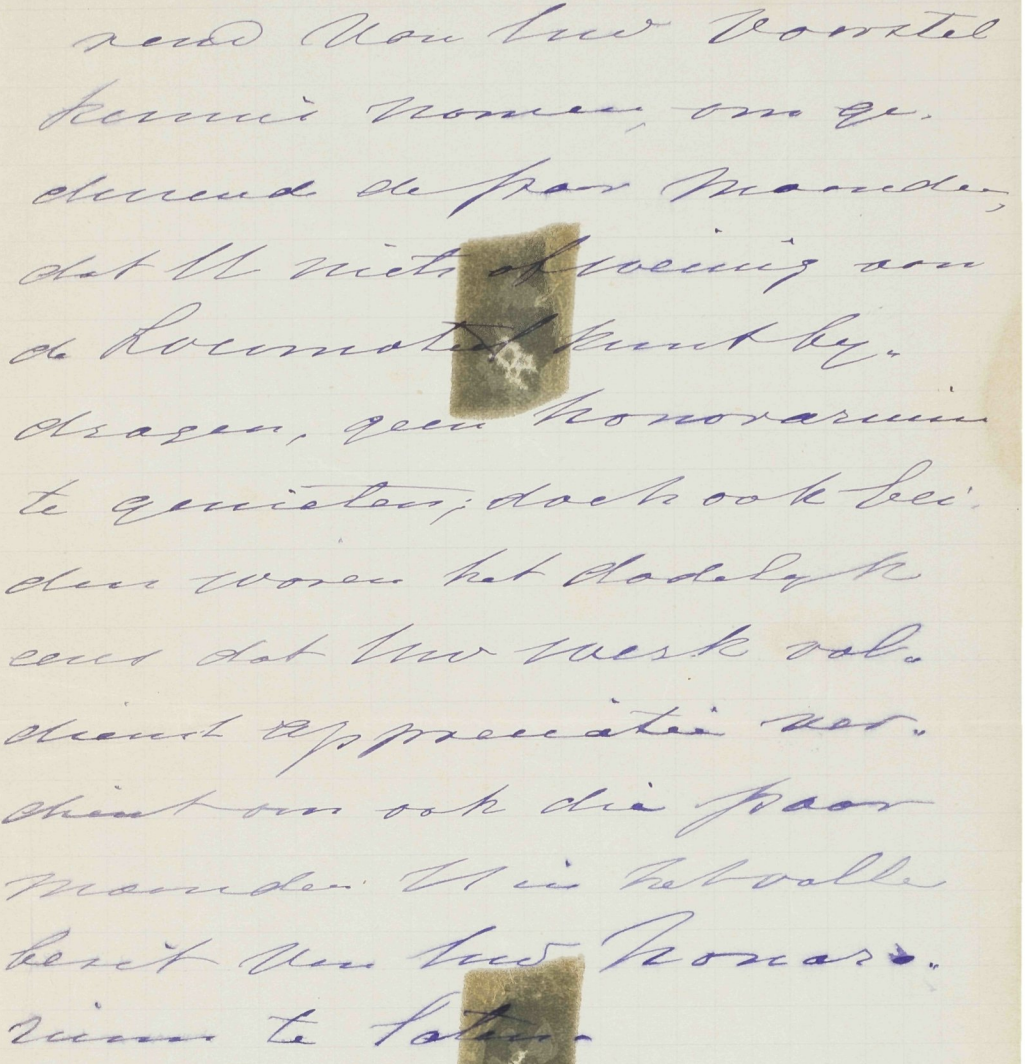 rend van Uw voorstel
kennis namen, om ge-
durende de paar maanden,
dat U niets of weinig aan
de Locomotief kunt by-
dragen, geen honorarium
te genieten; doch ook bei-
den waren het dadelyk
eens dat Uw werk vol-
diend appreciatie ver-
dient om ook die paar
maanden U in het volle
bezit van Uw honora-
rium te laten.